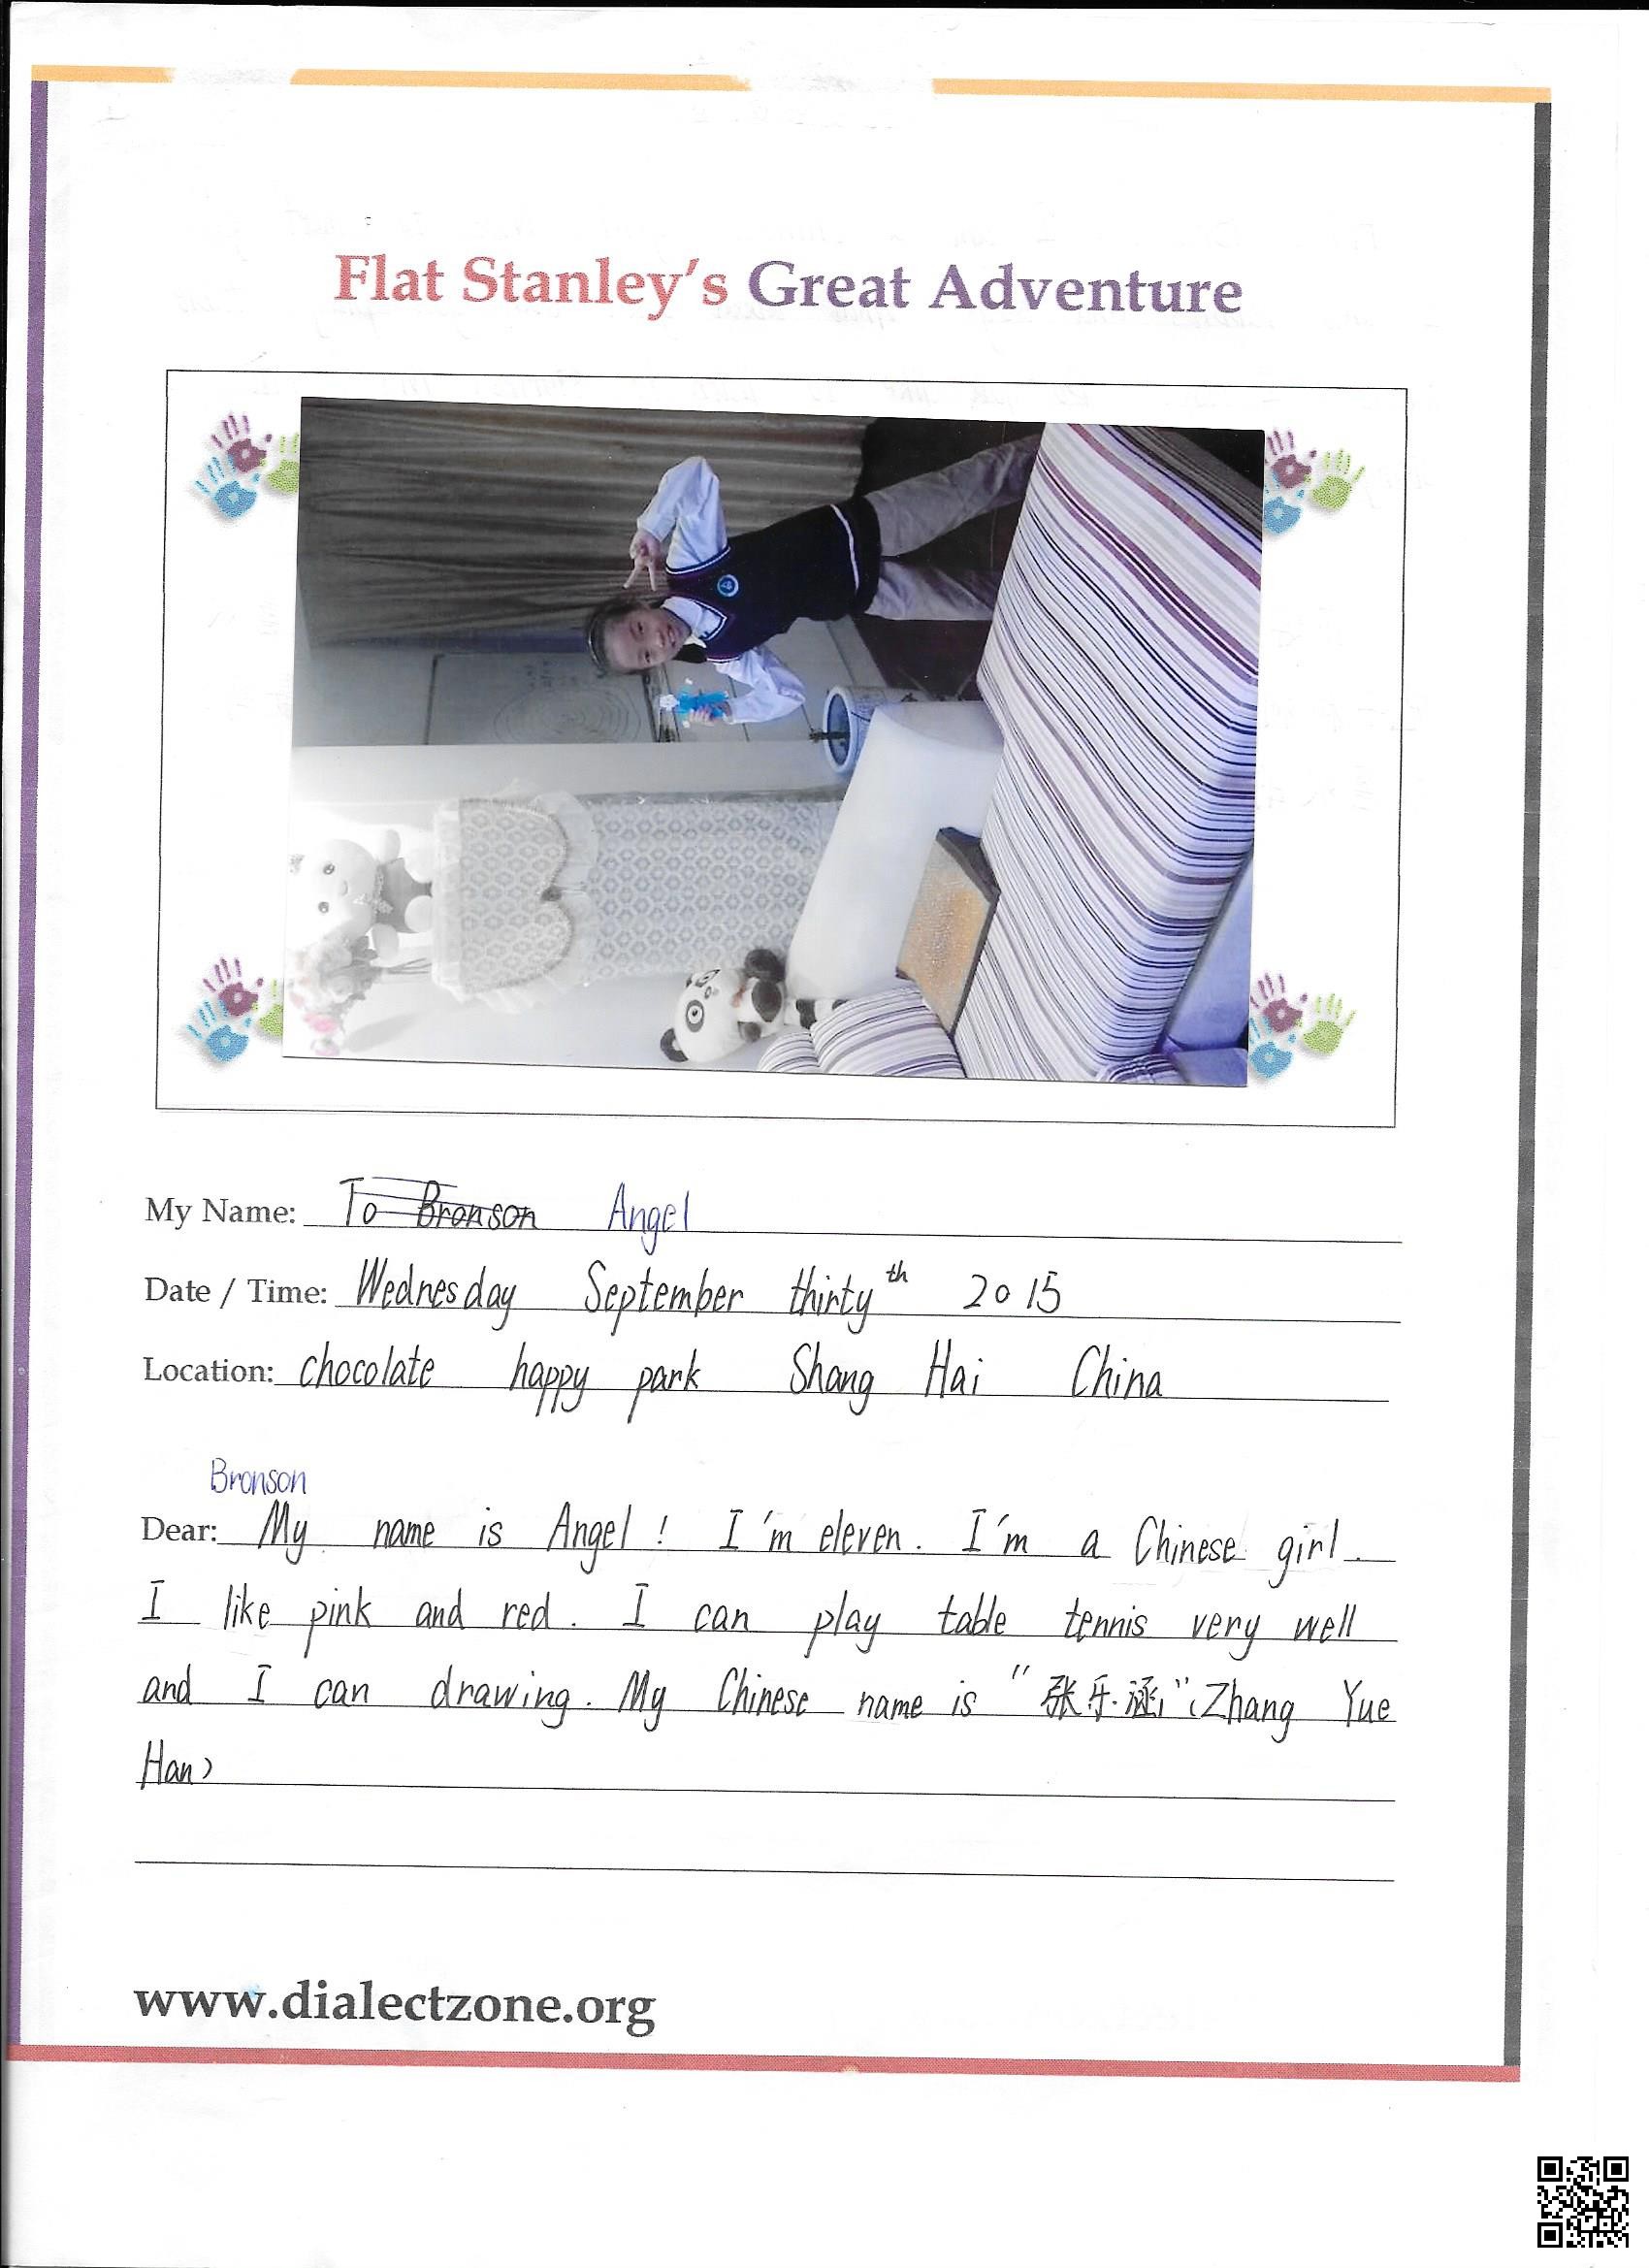 Flat Stanley's Great Adventure
My Name: To Bronson Angel
Date / Time: Wednesday September thirty th 2015
Location: chocolate happy park Shang Hai China
Bronson
Dear: My name is Angel! I'm eleven. I'm a Chinese girl.
I like pink and red. I can play table tennis very well
and I can drawing. My Chinese name is "张乐涵" (Zhang Yue
Han)
www.dialectzone.org